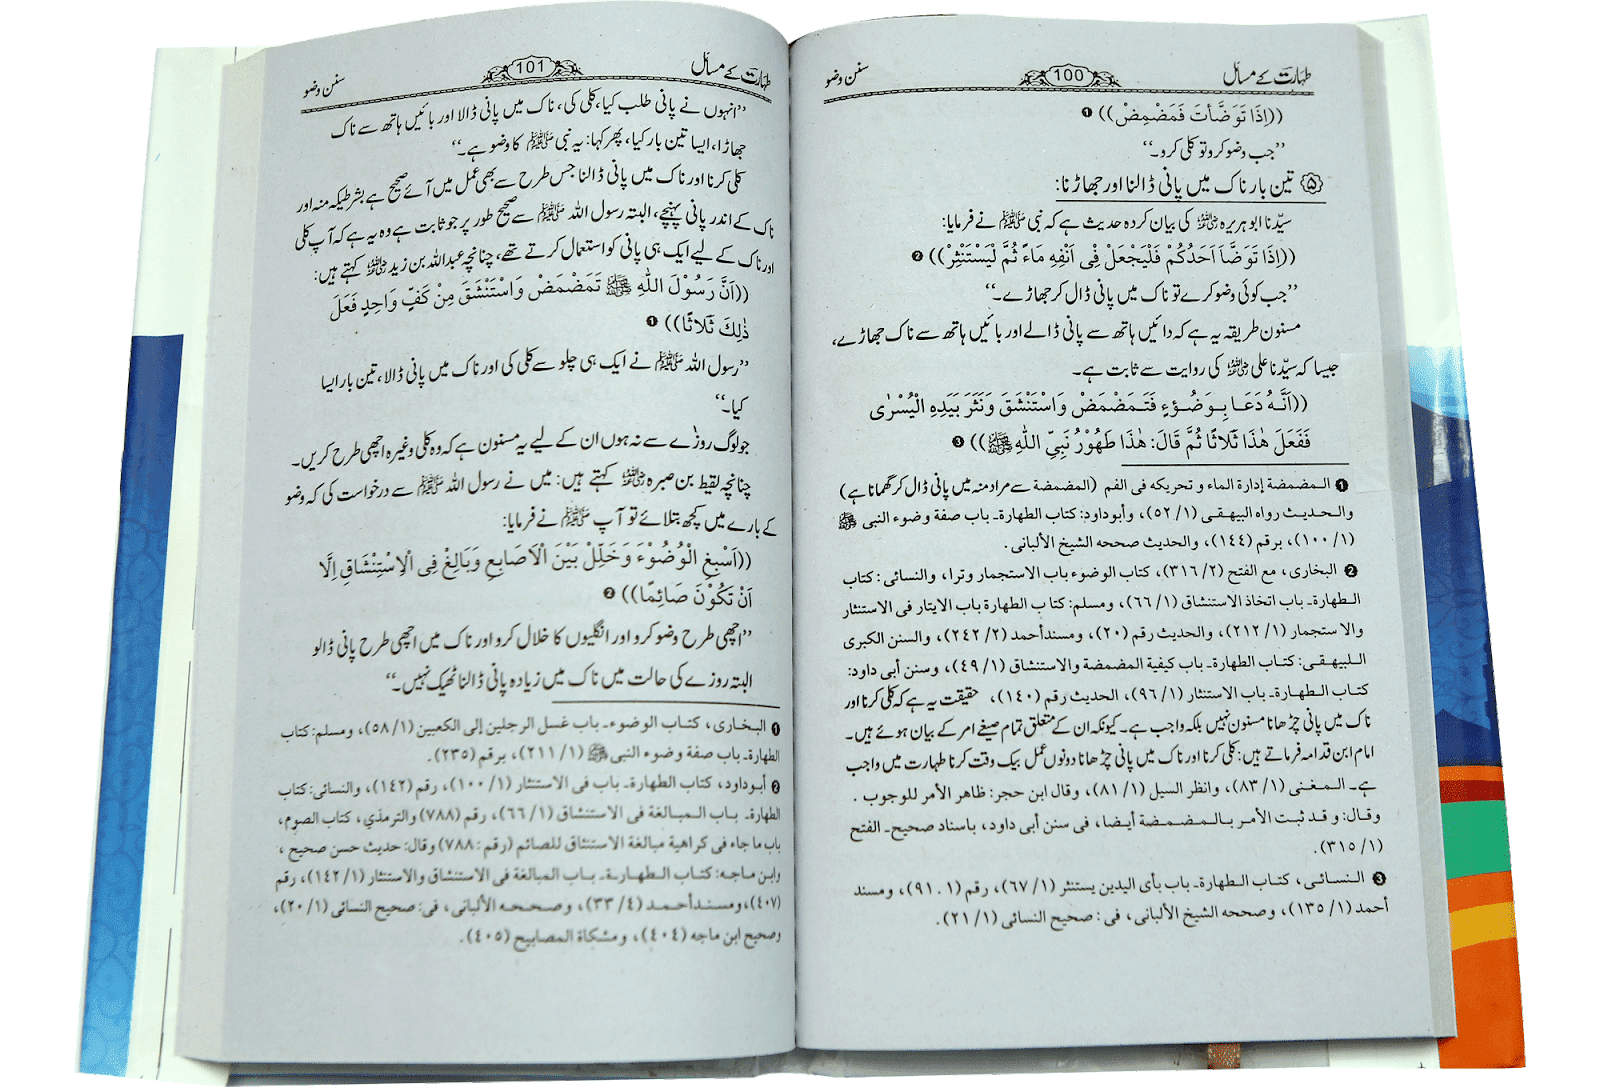 طہارت کے مسائل 100 سنن وضو
((اِذَا تَوَضَّأْتَ فَمَضْمِضْ)) ❶
’’جب وضو کرو تو کلی کرو۔‘‘
⑤ تین بار ناک میں پانی ڈالنا اور جھاڑنا:
سیّدنا ابو ہریرہ رضی اللہ عنہ کی بیان کردہ حدیث ہے کہ نبی ﷺ نے فرمایا:
((اِذَا تَوَضَّاَ اَحَدُكُمْ فَلْيَجْعَلْ فِى اَنْفِهِ مَاءً ثُمَّ لْيَسْتَنْثِرْ)) ❷
’’جب کوئی وضو کرے تو ناک میں پانی ڈال کر جھاڑے۔‘‘
مسنون طریقہ یہ ہے کہ دائیں ہاتھ سے پانی ڈالے اور بائیں ہاتھ سے ناک جھاڑے،
جیسا کہ سیّدنا علی رضی اللہ عنہ کی روایت سے ثابت ہے۔
((اَنَّـهُ دَعَـا بِـوَضُـوْءٍ فَتَـمَضْمَضَ وَاسْتَنْشَقَ وَنَثَرَ بِيَدِهِ الْيُسْرٰى
فَفَعَلَ هٰذَا ثَلَاثًا ثُمَّ قَالَ: هٰذَا طَهُوْرُ نَبِىِّ اللّٰهِ ﷺ)) ❸
❶ المضمضة إدارة الماء و تحريكه فى الفم (المضمضة سے مراد منہ میں پانی ڈال کر گھمانا ہے)
والحديث رواه البيهقى (١/ ٥٢)، وأبوداود: كتاب الطهارة۔ باب صفة وضوء النبى ﷺ
(١/ ١٠٠)، برقم (١٤٤)، والحديث صححه الشيخ الألبانى.
❷ البخارى، مع الفتح (٢/ ٣١٦)، كتاب الوضوء باب الاستجمار وترا، والنسائى: كتاب
الطهارة۔ باب اتخاذ الاستنشاق (١/ ٦٦)، ومسلم: كتاب الطهارة باب الايتار فى الاستنثار
والاستجمار (١/ ٢١٢)، والحديث رقم (٢٠)، ومسندأحمد (٢/ ٢٤٢)، والسنن الكبرى
للبيهقى: كتاب الطهارة۔ باب كيفية المضمضة والاستنشاق (١/ ٤٩)، وسنن أبى داود:
كتاب الطهارة۔ باب الاستنثار (١/ ٩٦)، الحديث رقم (١٤٠)، حقیقت یہ ہے کہ کلی کرنا اور
ناک میں پانی چڑھانا مسنون نہیں بلکہ واجب ہے۔ کیونکہ ان کے متعلق تمام صیغے امر کے بیان ہوئے ہیں۔
امام ابن قدامہ فرماتے ہیں: کلی کرنا اور ناک میں پانی چڑھانا دونوں عمل بیک وقت کرنا طہارت میں واجب
ہے۔ المغنى (١/ ٨٣)، وانظر السيل (١/ ٨١)، وقال ابن حجر: ظاهر الأمر للوجوب .
وقال: و قد ثبت الأمر بالمضمضة أيضا، فى سنن أبى داود، باسناد صحيح۔ الفتح
(١/ ٣١٥).
❸ النسائى، كتاب الطهارة۔ باب بأى اليدين يستنثر (١/ ٦٧)، رقم (٩١.١)، ومسند
أحمد (١/ ١٣٥)، وصححه الشيخ الألبانى، فى: صحيح النسائى (١/ ٢١).
طہارت کے مسائل 101 سنن وضو
’’انہوں نے پانی طلب کیا، کلی کی، ناک میں پانی ڈالا اور بائیں ہاتھ سے ناک
جھاڑا، ایسا تین بار کیا، پھر کہا: یہ نبی ﷺ کا وضو ہے۔‘‘
کلی کرنا اور ناک میں پانی ڈالنا جس طرح سے بھی عمل میں آئے صحیح ہے بشرطیکہ منہ اور
ناک کے اندر پانی پہنچے، البتہ رسول اللہ ﷺ سے صحیح طور پر جو ثابت ہے وہ یہ ہے کہ آپ کلی
اور ناک کے لیے ایک ہی پانی کو استعمال کرتے تھے، چنانچہ عبداللہ بن زید رضی اللہ عنہ کہتے ہیں:
((اَنَّ رَسُوْلَ اللّٰهِ ﷺ تَمَضْمَضَ وَاسْتَنْشَقَ مِنْ كَفٍّ وَاحِدٍ فَعَلَ
ذٰلِكَ ثَلَاثًا)) ❶
’’رسول اللہ ﷺ نے ایک ہی چلو سے کلی کی اور ناک میں پانی ڈالا، تین بار ایسا
کیا۔‘‘
جو لوگ روزے سے نہ ہوں ان کے لیے یہ مسنون ہے کہ وہ کلی وغیرہ اچھی طرح کریں۔
چنانچہ لقیط بن صبرہ رضی اللہ عنہ کہتے ہیں: میں نے رسول اللہ ﷺ سے درخواست کی کہ وضو
کے بارے میں کچھ بتلائے تو آپ ﷺ نے فرمایا:
((اَسْبِغِ الْوُضُوْءَ وَخَلِّلْ بَيْنَ الْاَصَابِعِ وَبَالِغْ فِى الْاِسْتِنْشَاقِ اِلَّا
اَنْ تَكُوْنَ صَائِمًا)) ❷
’’اچھی طرح وضو کرو اور انگلیوں کا خلال کرو اور ناک میں اچھی طرح پانی ڈالو
البتہ روزے کی حالت میں ناک میں زیادہ پانی ڈالنا ٹھیک نہیں۔‘‘
❶ البخارى، كتاب الوضوء۔ باب غسل الرجلين إلى الكعبين (١/ ٥٨)، ومسلم: كتاب
الطهارة۔ باب صفة وضوء النبى ﷺ (١/ ٢١١)، برقم (٢٣٥).
❷ أبوداود، كتاب الطهارة۔ باب فى الاستنثار (١/ ١٠٠)، رقم (١٤٢)، والنسائى: كتاب
الطهارة۔ باب المبالغة فى الاستنشاق (١/ ٦٦)، رقم (٧٨٨) والترمذي، كتاب الصوم،
باب ما جاء فى كراهية مبالغة الاستنشاق للصائم (رقم: ٧٨٨) وقال: حديث حسن صحيح ،
وابن ماجه: كتاب الطهارة۔ باب المبالغة فى الاستنشاق والاستنثار (١/ ١٤٢)، رقم
(٤٠٧)، ومسندأحمد (٤/ ٣٣)، وصححه الألبانى، فى: صحيح النسائى (١/ ٢٠)،
وصحيح ابن ماجه (٤٠٤)، ومشكاة المصابيح (٤٠٥).